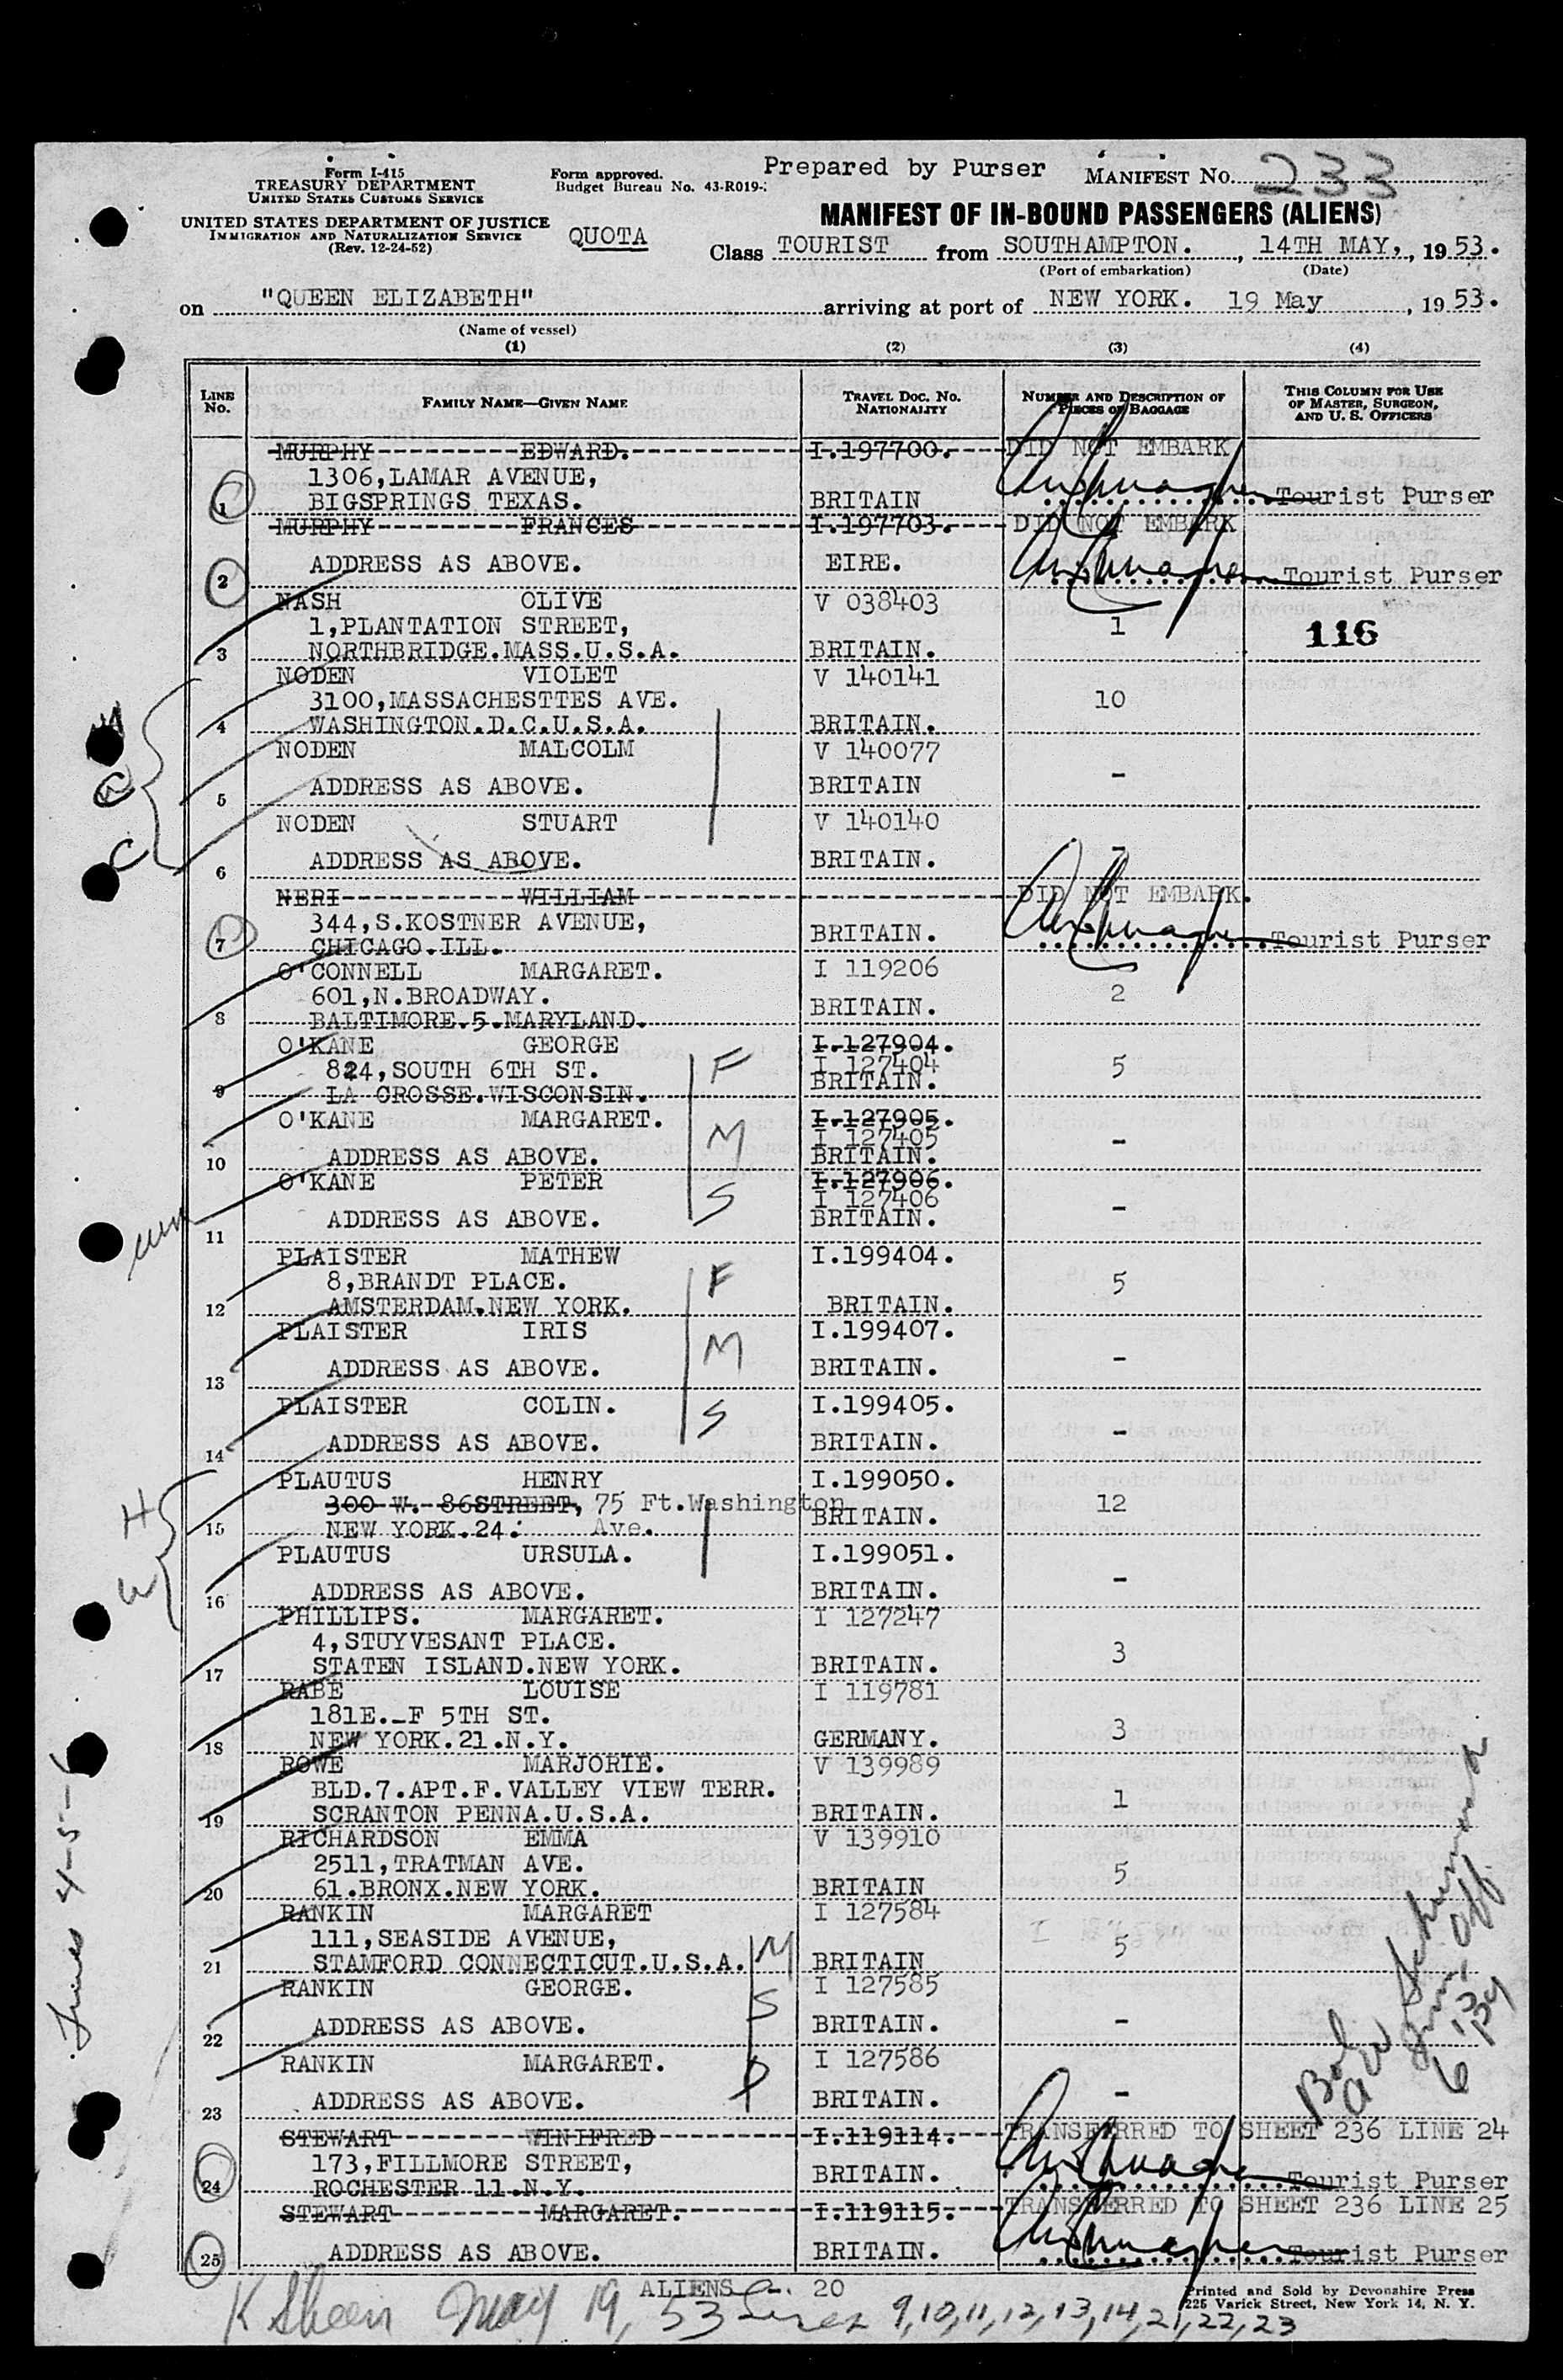 Form I-415
TREASURY DEPARTMENT
UNITED STATES CUSTOMS SERVICE
UNITED STATES DEPARTMENT OF JUSTICE
IMMIGRATION AND NATURALIZATION SERVICE
(Rev. 12-24-52)
Form approved.
Budget Bureau No. 43-R019-
QUOTA
Prepared by Purser
MANIFEST NO. 233
MANIFEST OF IN-BOUND PASSENGERS (ALIENS)
Class TOURIST from SOUTHAMPTON. , 14TH MAY, , 1953.
(Port of embarkation) (Date)
on "QUEEN ELIZABETH" arriving at port of NEW YORK. 19 May , 1953.
(Name of vessel)
(1) (2) (3) (4)
LINE NO. FAMILY NAME—GIVEN NAME TRAVEL DOC. NO. NATIONALITY NUMBER AND DESCRIPTION OF PIECES OF BAGGAGE THIS COLUMN FOR USE OF MASTER, SURGEON, AND U. S. OFFICERS
MURPHY EDWARD. I.197700. DID NOT EMBARK
1306,LAMAR AVENUE,
1 BIGSPRINGS TEXAS. BRITAIN Tourist Purser
MURPHY FRANCES I.197703. DID NOT EMBARK
2 ADDRESS AS ABOVE. EIRE. Tourist Purser
NASH OLIVE V 038403
1,PLANTATION STREET, 1 116
3 NORTHBRIDGE.MASS.U.S.A. BRITAIN.
NODEN VIOLET V 140141
3100,MASSACHESTTES AVE. 10
4 WASHINGTON.D.C.U.S.A. BRITAIN.
NODEN MALCOLM V 140077
5 ADDRESS AS ABOVE. BRITAIN -
NODEN STUART V 140140
6 ADDRESS AS ABOVE. BRITAIN. -
C
NERI WILLIAM DID NOT EMBARK.
344,S.KOSTNER AVENUE,
7 CHICAGO.ILL. BRITAIN. Tourist Purser
O'CONNELL MARGARET. I 119206
601,N.BROADWAY. 2
8 BALTIMORE.5.MARYLAND. BRITAIN.
O'KANE GEORGE I.127904.
824,SOUTH 6TH ST. F I 127404 5
9 LA CROSSE.WISCONSIN. BRITAIN.
O'KANE MARGARET. I.127905.
M I 127405 -
10 ADDRESS AS ABOVE. BRITAIN.
O'KANE PETER I.127906.
S I 127406 -
11 ADDRESS AS ABOVE. BRITAIN.
PLAISTER MATHEW I.199404.
8,BRANDT PLACE. F 5
12 AMSTERDAM.NEW YORK. BRITAIN.
PLAISTER IRIS I.199407.
13 ADDRESS AS ABOVE. M BRITAIN. -
PLAISTER COLIN. S I.199405.
14 ADDRESS AS ABOVE. BRITAIN. -
PLAUTUS HENRY I.199050.
H 300 W. 86STREET, 75 Ft.Washington 12
15 NEW YORK.24. Ave. BRITAIN.
PLAUTUS URSULA. I.199051.
W 16 ADDRESS AS ABOVE. BRITAIN. -
PHILLIPS. MARGARET. I 127247
4,STUYVESANT PLACE. 3
17 STATEN ISLAND.NEW YORK. BRITAIN.
RABE LOUISE I 119781
181E.-F 5TH ST. 3
18 NEW YORK.21.N.Y. GERMANY.
ROWE MARJORIE. V 139989
BLD.7.APT.F.VALLEY VIEW TERR. 1
19 SCRANTON PENNA.U.S.A. BRITAIN.
RICHARDSON EMMA V 139910
2511,TRATMAN AVE. 5
20 61.BRONX.NEW YORK. BRITAIN
RANKIN MARGARET I 127584
111,SEASIDE AVENUE, 5
21 STAMFORD CONNECTICUT.U.S.A. M BRITAIN
RANKIN GEORGE. S I 127585
22 ADDRESS AS ABOVE. BRITAIN. -
RANKIN MARGARET. D I 127586
23 ADDRESS AS ABOVE. BRITAIN. -
STEWART WINIFRED I.119114. TRANSFERRED TO SHEET 236 LINE 24
173,FILLMORE STREET,
24 ROCHESTER 11.N.Y. BRITAIN. Tourist Purser
STEWART MARGARET. I.119115. TRANSFERRED TO SHEET 236 LINE 25
25 ADDRESS AS ABOVE. BRITAIN. Tourist Purser
Lines 4-5-6
ALIENS 20
Printed and Sold by Devonshire Press
225 Varick Street, New York 14, N. Y.
K Sheen May 19, 53 Lines 9,10,11,12,13,14,21,22,23